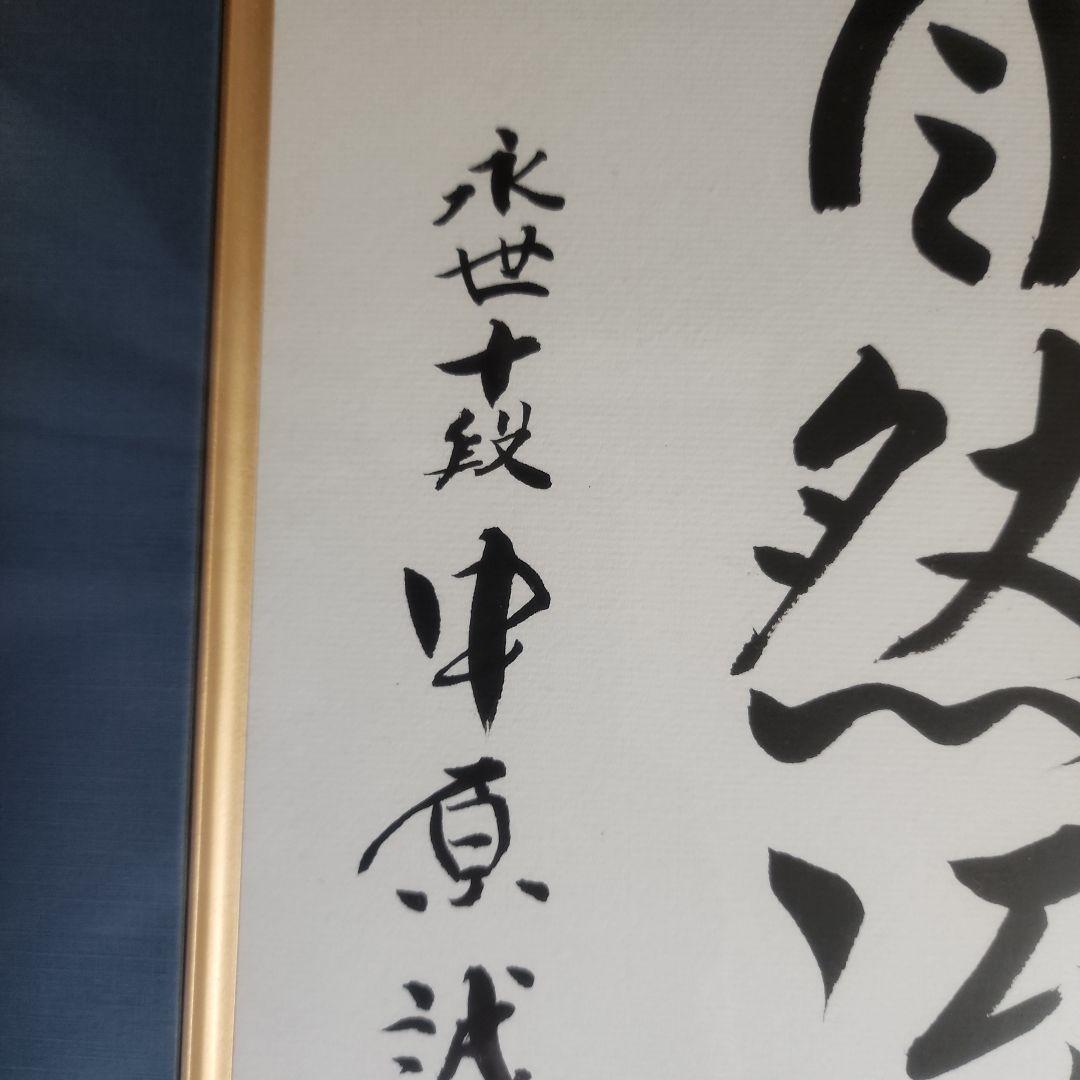 自然
永世十段 中原誠